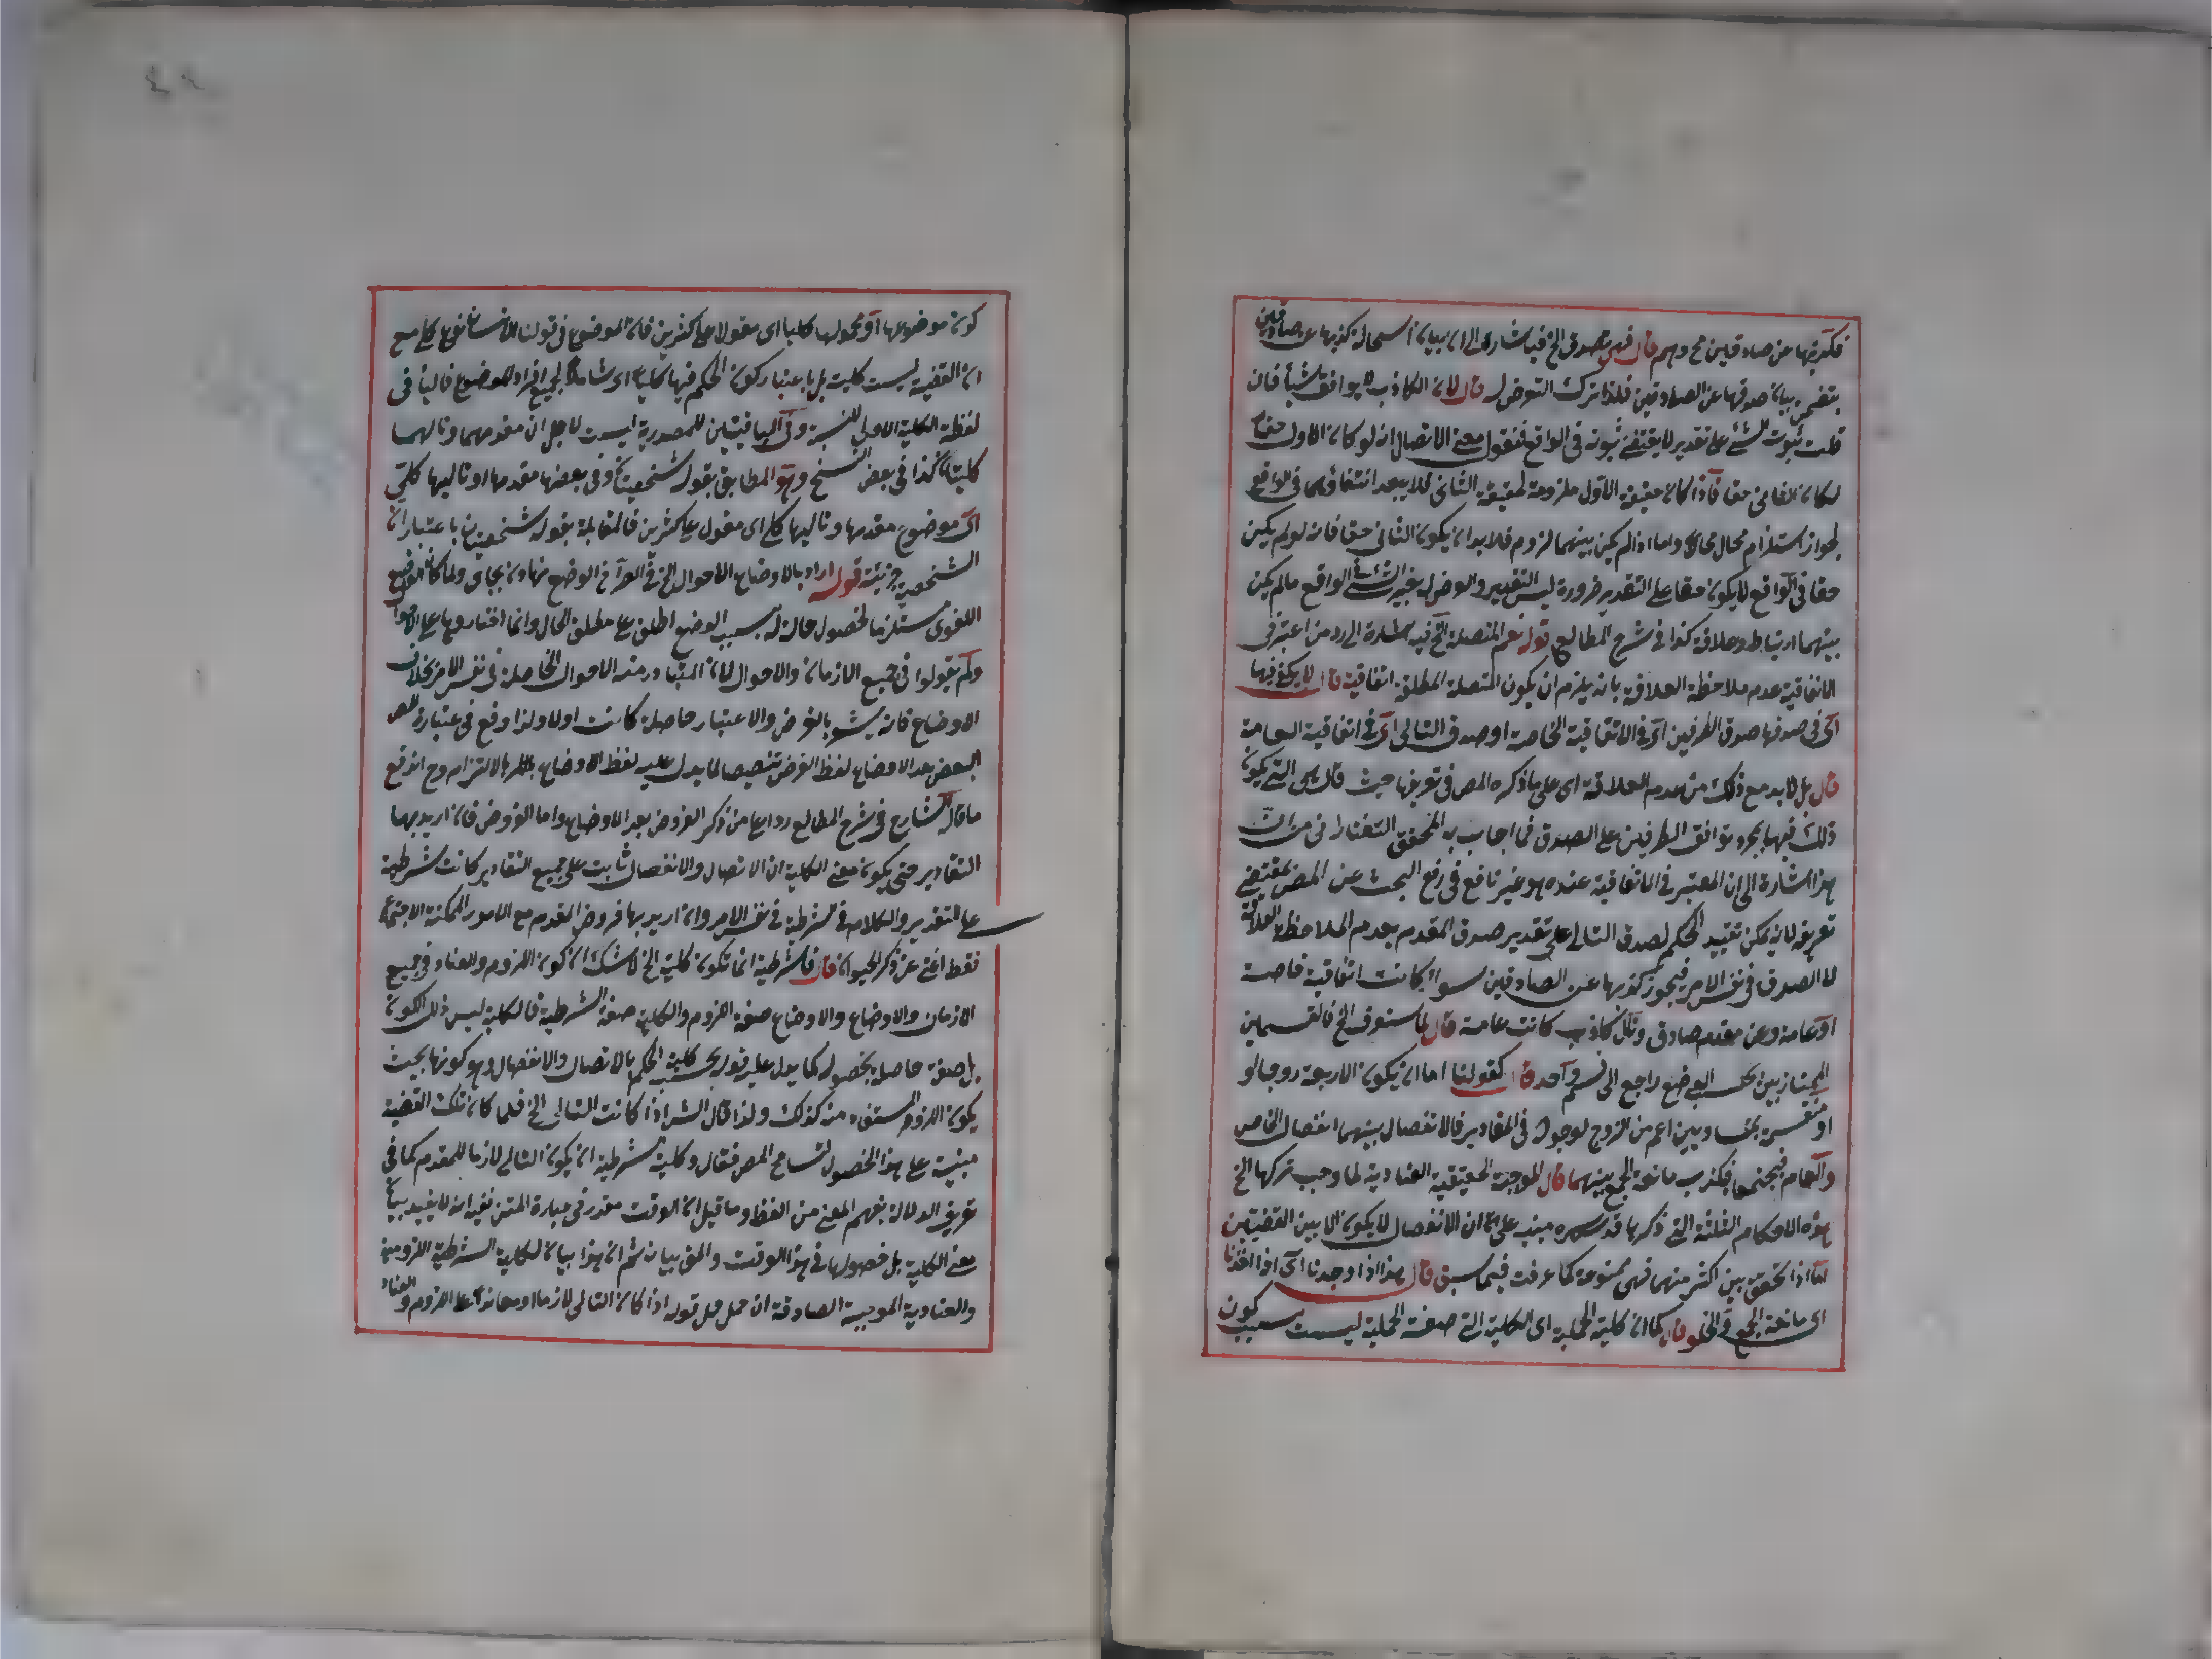 فكذبها عن صادقين مح وهم قال فهي تصدق الخ فيه اشارة الى ان بيان استحالة كذبها عن صادقين
يتضمن بيان صدقها عن الصادقين فلذا ترك التعرض له قال لان الكاذب لا يوافق شيأ فان
قلت ثبوت الشئ على تقدير لا يقتضي ثبوته في الواقع فنقول معنى الاتصال انه لو كان الاول حقا
لكان الثاني حقا فاذا كان حقيقة الاول ملزومة لحقيقة الثاني فلا يبعد انتفاؤهما في الواقع
لجواز استلزام محال محالا واما اذا لم يكن بينهما لزوم فلا بد ان يكون الثاني حقا فانه لو لم يكن
حقا في الواقع لا يكون حقا على التقدير ضرورة ليس التقدير والفرض له يغير الشئ الواقع ما لم يكن
بينهما ارتباط وعلاقة كذا في شرح المطالع قوله نعم المتصلة الخ فيه اشارة الى رد من اعتبر في
الاتفاقية عدم ملاحظة العلاقة بانه يلزم ان يكون المتصلة المطلقة اتفاقية قال لا يكفي فيها
اى في صدقها صدق الطرفين اى في الاتفاقية الخاصة او صدق التالى اى في اتفاقية العامة
قال بل لا بد مع ذلك من عدم العلاقة اى على ما ذكره المص في تعريفها حيث قال هي التي يكون
ذلك فيها بمجرد توافق الطرفين على الصدق فما اجاب به المحقق التفتازانى من ان
هذا اشارة الى ان المعتبر في الاتفاقية عنده هو غير نافع في رفع البحث عن المص بمقتضى
تعريفه لانه يمكن تقييد الحكم لصدق التالى على تقدير صدق المقدم بعدم الملاحظة العلاقة
لا الصدق في نفس الامر فيجوز كذبها عن الصادقين سواء كانت اتفاقية خاصة
او عامة وعن مقدم صادق وتال كاذب كانت عامة قال لما ستعرف الخ فالقسمان
الممتازين بحسب الوضع راجع الى قسم واحد قال كقولنا اما ان يكون الاربعة زوجا او
او منقسمة بمتساويين اعم من الزوج لوجوده في المقادير فالانفصال بينهما انفصال الخاص
والعام فيجتمعا فيكذب مانعة الجمع بينهما قال الموجبة الحقيقية العنادية لما وجب تركها الخ
هذه الاحكام الثلثة التي ذكرها قدس سره مبنية على ان الانفصال لا يكون الا بين القضيتين
اما اذا تحقق بين اكثر منهما فهي ممنوعة كما عرفت فيما سبق قال هذا اذا وجدنا اى اذا اخذنا
اى مانعة الجمع والخلو قال كما ان كلية الحملية اى الكلية التي صفة الحملية ليست بسبب كون
كون موضوعها او محمولها كليا اى مقولا على كثيرين فان الموضوع في قولنا الانسان نوع كلي مع
ان القضية ليست كلية بل باعتبار كون الحكم فيها كليا اى شاملا لجميع افراد الموضوع فالياء في
لفظة الكلية الاولى للنسبة وفي الباقيتين للمصدرية ليست لاجل ان مقدمهما وتاليهما
كليتان كذا في بعض النسخ وهو المطابق بقوله شخصيتان وفي بعضها مقدمها او تاليها كلي
اى موضوع مقدمها وتاليها كلي اى مقول على كثيرين فالمقابلة بقوله شخصيتان باعتبار ان
الشخصية جزئية قوله اراد بالاوضاع الاحوال الخ في الوضع
اللغوى مستلزما لحصول حالة له بسبب الوضع اطلق على مطلق الحال وانما اختاروها على الاحوال
ولم يقولوا في جميع الازمان والاحوال لان المتبادر منه الاحوال الحاصلة في نفس الامر بخلاف
الاوضاع فانه يشعر بالفرض والاعتبار حاصلة كانت اولا ولذا وقع في عبارة المص
البعض بعد الاوضاع لفظ الفرض تنصيصا لما يدل عليه لفظ الاوضاع بالالتزام وح اندفع
ما قاله الشارح في شرح المطالع ردا على من ذكر الفروض بعد الاوضاع واما الفروض فان اريد بها
التقادير حتى يكون معنى الكلية ان الاتصال والانفصال ثابت على جميع التقادير كانت شرطية
على التقدير والكلام في الشرطية في نفس الامر وان اريد بها فروض المقدم مع الامور الممكنة الاجتماع
فقط اغنى عن ذكر قال فالشرطية انما تكون كلية الخ لا شك ان كون اللزوم والعناد في جميع
الازمان والاوضاع والاوضاع صفة اللزوم والكلية صفة الشرطية فالكلية ليس ذلك الكون
بل صفة حاصلة بحصوله كما يدل عليه قوله بحسب كلية الحكم بالاتصال والانفصال وهو كونها بحيث
يكون اللزوم المستفاد منه كذلك ولذا قال الشر اذا كانت التالى الخ فلما كان تلك القضية
مبنية على هذا الحصول تسامح المص فقال وكلية الشرطية ان يكون التالى لازما للمقدم كما في
تعريف الدلالة بفهم المعنى من اللفظ وما قيل ان الوقت مقدر في عبارة المتن ففيه انه لا يفيد بيان
معنى الكلية بل حصولها في هذا الوقت والمق بيانه ثم ان هذا بيان لكلية الشرطية اللزومية
والعنادية الموجبة الصادقة ان حمل قوله اذا كان التالى لازما او معاندا على اللزوم والعناد